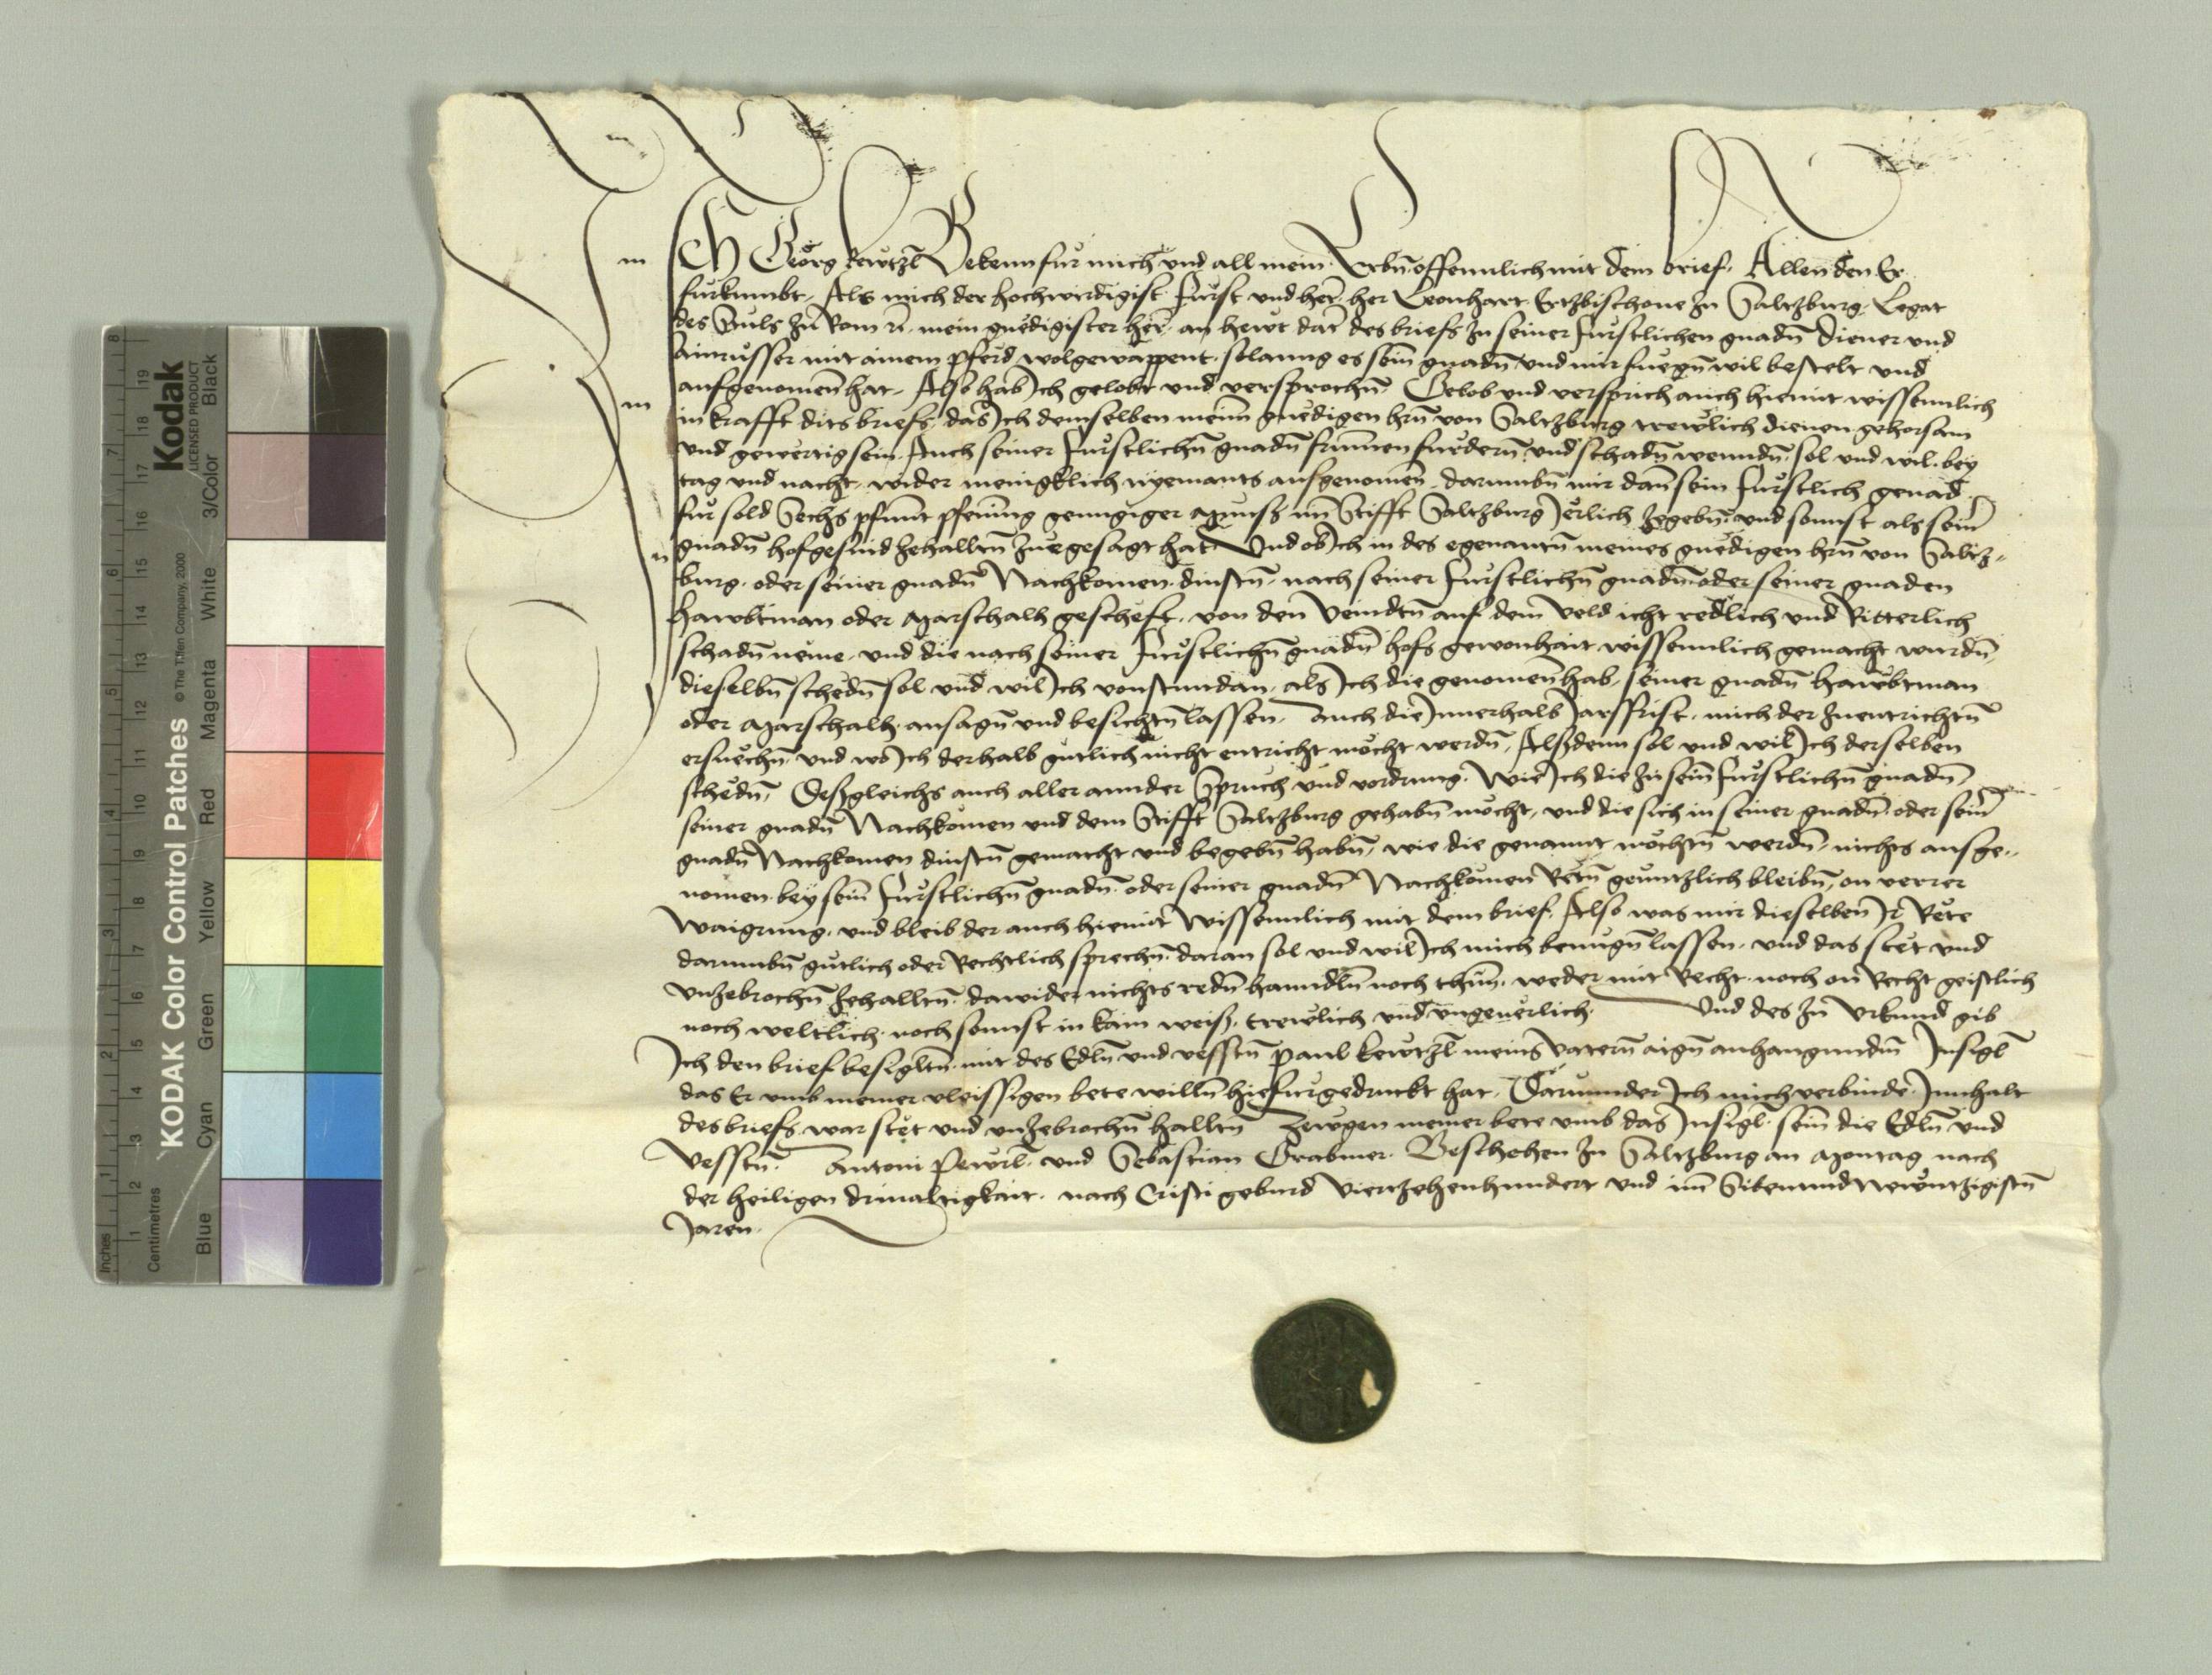 Ich Georg kewtzl Bekenn fur mich und all mein Erbn offennlich mit dem brief. Allen den Er
furkumbt, Als mich der hochwirdigist furst und her, her Leonhart Ertzbischove zu Saltzburg Legat
des Stuls zu Rom rc. mein gnedigister her, an hewt dat des briefs zu seiner furstlichen gnadn Diener und
ainrusser mit ainem pferd wolgewappent, solanng es sein gnadn und mir fuegn wil bestelt und
aufgenomen hat, Also hab Ich gelobt und versprochn, Gelob und versprich auch hiemit wissennlich
in krafft dits briefs, das Ich demselben meinm gnedigen hrn von Saltzburg trewlich dienen gehorsam
und gewertig sein, Auch seiner furstlichn gnadn frummen furdern und schadn wenndn, sol und wil, bey
tag und nacht, wider menigklich nyemants ausgenomen, darumbn mir dann sein furstlich genad
fur sold Sechs pfunt pfening genngiger Munss im Stifft Saltzburg Jerlich zegebn, und sonnst als sein
gnadn hofgesind zehalltn zuegesagt hat Und ob Ich in des egenantn meines gnedigen hrn von Saltz-
burg, oder seiner gnadn Nachkomen, dinstn, nach seiner furstlichn gnadn oder seiner gnaden
hawbtman oder Marschalh gescheft, von den veindtn auf dem veld icht redlich und Ritterlich
schadn neme, und die nach seiner furstlichn gnadn hofs gewonhait wissennlich gemacht wurdn,
dieselbn schedn sol und wil Ich vonstundan, als Ich die genomen hab, seiner gnadn hawbtman
oder Marschalh, ansagn und besichtn lassen, Auch die Innerhalb Jarsfrist, mich der zuentrichtn
ersuechn, und wo Ich derhalb gutlich nicht entricht mocht werdn, Alssdenn sol und wil Ich derselben
schedn, Dessgleichs auch aller annder Spruch und vordrung, Wie Ich die zu sein furstlichn gnadn,
seiner gnadn Nachkomen und dem Stifft Saltzburg gehabn mocht, und die sich in seiner gnadn oder sein
gnadn Nachkomen dinstn gemacht und begebn habn, wie die genannt mochtn werdn, nichts ausge-
nomen, bey sein furstlichn gnadn, oder seiner gnadn Nachkomen Retn genntzlich bleibn, on verrer
Waigrung, und bleib der auch hiemit Wissennlich mit dem brief, Also was mir dieselben Ir Rete
darumbn gutlich oder Rechtlich sprechn, daran sol und wil Ich mich benugn lassen, und das stet und
unzebrochn zehalltn, dawider nichts redn hanndln noch thun, weder mit Recht, noch on Recht geistlich
noch weltlich, noch sonnst in kain weiss, trewlich und ungeuerlich. Und des zu Urkund gib
Ich den brief besigltn, mit des Edln und vesstn Paul kewtzl meins Vatern aign anhangundm Insigl
das Er umb meiner vleissigen bete willn hiefurgedruckt hat, Darunnder Ich mich verbinde, Innhalt
des briefs, war stet und unzebrochn halltn Zewgen meiner bete umb das Insigl, sein die Edln und
vesstn, Antoni Pewrl, und Sebastian Grabmer. Beschehen zu Saltzburg an Montag nach
der heiligen drivaltigkait, nach Cristi geburd Viertzehenhundert und im Sibenundnewntzigistn
Jaren.